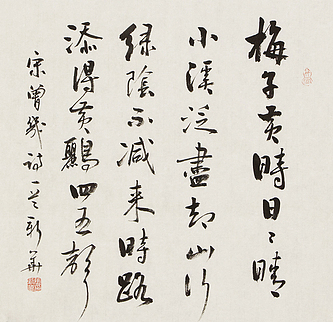 梅子黄時日日晴
小溪泛盡却山行
緑陰不減来時路
添得黄鸝四五聲
宋曾幾詩一首